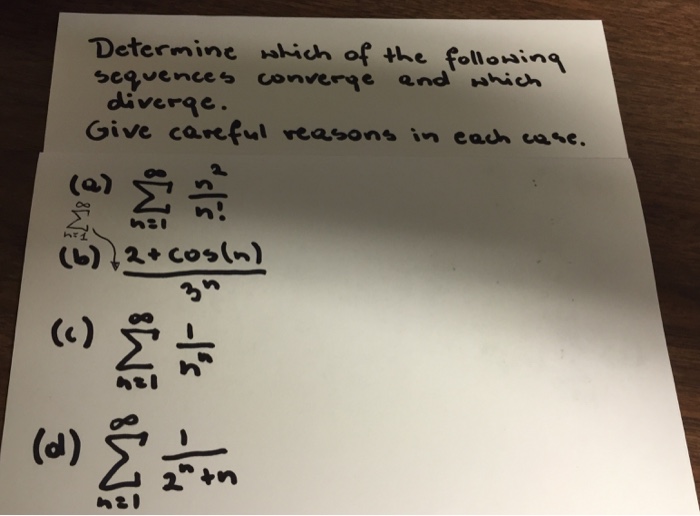 Determine which of the following
sequences converge and which
diverge.
Give careful reasons in each case.
(a) ∑_{n=1}^{∞} n²/n!
(b) ∑_{n=1}^{∞} (2+cos(n))/3ⁿ
(c) ∑_{n=1}^{∞} 1/nⁿ
(d) ∑_{n=1}^{∞} 1/(2ⁿ+n)